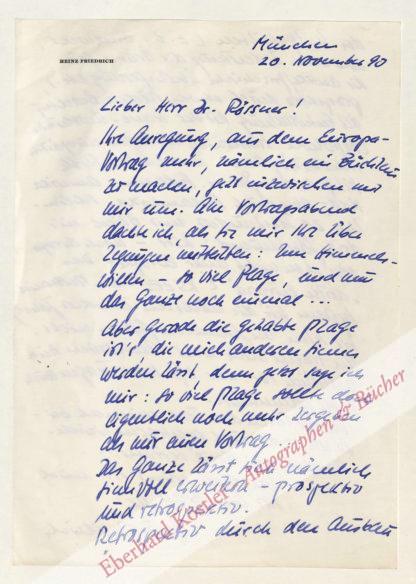 München
20. November 90
HEINZ FRIEDRICH
Lieber Herr Dr. Rössner!
Ihre Anregung, aus dem Europa-
Vortrag mehr, nämlich ein Büchlein
zu machen, geht inzwischen mit
mir um. Am Vortragsabend
dachte ich, als Sie mir Ihre Über
legungen mitteilten: Um Himmels-
willen – so viel Plage, und nun
das Ganze noch einmal ...
Aber gerade die gehabte Plage
ist's, die mich anderen Sinnes
werden lässt, denn jetzt sage ich
mir: so viel Plage sollte doch
eigentlich noch mehr ergeben
als nur einen Vortrag.
Das Ganze lässt sich nämlich
sinnvoll erweitern – prospektiv
und retrospektiv.
Retrospektiv durch den Ausbau
Eberhard Köstler - Autographen & Bücher